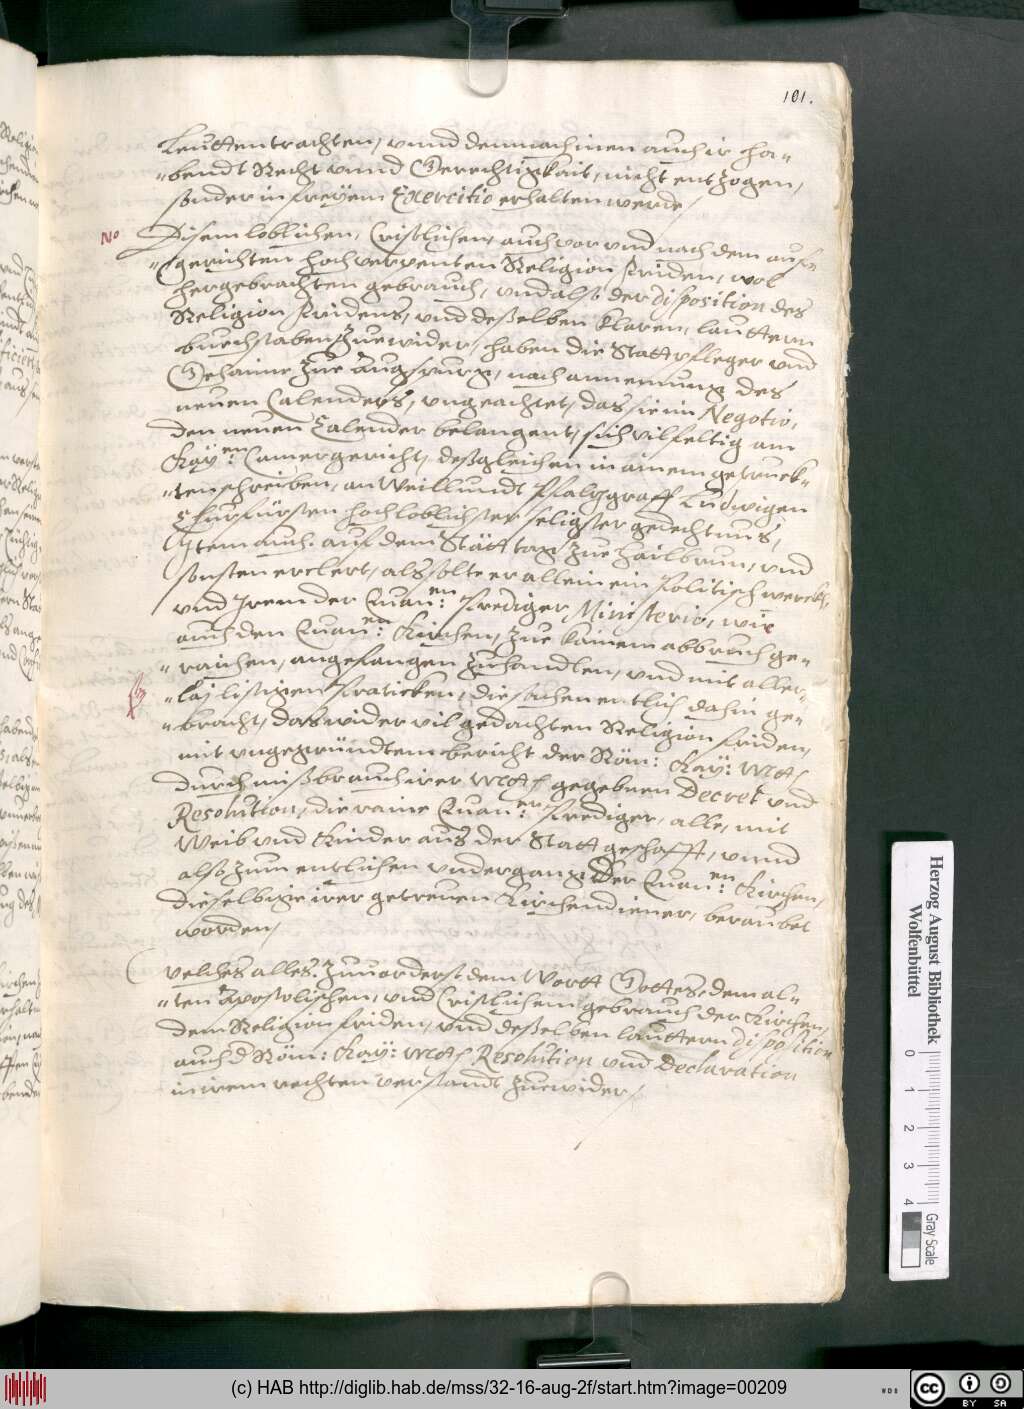 101.
Leutten trachten, vnnd demnach inen auch ir ha=
=bendt Recht vnnd Gerechtigkait, nicht entzogen,
sonder in freyem Exercitio erhalten werde,
No Disem loblichen, Cristlichen, auch vor vnd nach dem auff=
=gerichten hochverpenten Religion friden, wol
hergebrachten gebrauch, vnd also der disposition des
Religion fridens, vnd deßelben klaren, lauttern
buechstaben zuewider, haben die Stattpfleger vnd
Gehaime zue Augspurg, nach annemung des
neuen Calenders, vngeachtet, das sie im Negotio,
den neuen Calender belangent, sich vilfeltig am
Kay:en Camergericht, deßgleichen in ainem getruck=
=ten schreiben, an Weillundt Pfalzgraff Ludwigen
Churfürsten hochloblichster seligster gedechtnus,
Item auch auf dem Stätt tag zue Hailbrun, vnd
sonsten erclert, als solte er allein ein Politisch werckh,
vnd Irem der Euan:en Prediger Ministerio, wie
auch den Euan:en Kirchen, zue kainem abbruch ge=
=raichen, angefangen zuhandlen, vnd mit aller=
=laj listigen Praticken, die sachen entlich dahin ge=
=bracht, das wider vil gedachten Religion friden,
mit vngegründtem bericht der Röm: Kay: Mtt
durch mißbrauch irer Mtt gegebnen Decret vnd
Resolution, die raine Euan:en Prediger, alle, mit
Weib vnd Kinder aus der Statt geschafft, vnnd
also zum entlichen vndergang der Euan:en Kirchen,
dieselbige irer getreuen Kirchendiener, beraubet
worden,
welches alles, zuuorderst dem Wortt Gottes, dem al=
=ten Apostolischen, vnd Cristlichem gebrauch der Kirchen,
dem Religion friden, vnd deßelben lauttern disposition
auch d Röm: Kay: Mtt Resolution vnd Declaration
in irem rechten verstandt zuewider,
Herzog August Bibliothek
Wolfenbüttel
0 1 2 3 4
Gray Scale
(c) HAB http://diglib.hab.de/mss/32-16-aug-2f/start.htm?image=00209
WDB
CC BY SA